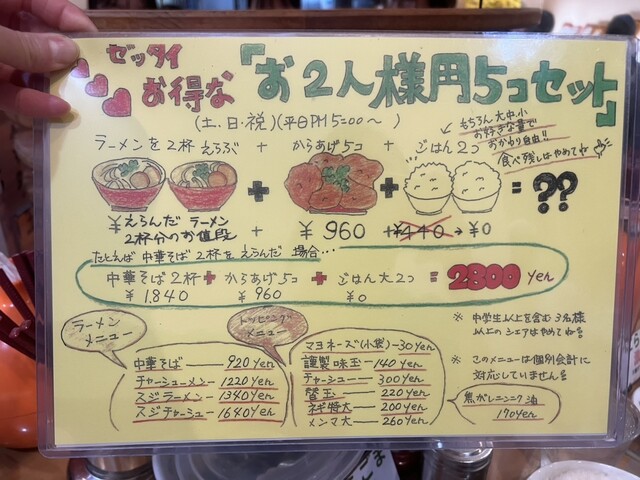 ゼッタイ
お得な
『お2人様用5コセット』
(土、日・祝)(平日PM5:00〜 )
もちろん大中小
お好きな量で
おかわり自由!!
食べ残しはやめてね
ラーメンを2杯えらぶ + からあげ5コ + ごはん2つ
+ + = ??
¥えらんだラーメン
2杯分のお値段 + ¥960 + ¥440 → ¥0
たとえば 中華そば2杯をえらんだ場合…
中華そば2杯 + からあげ5コ + ごはん大2つ = 2800yen
¥1,840 ¥960 ¥0
ラーメン
メニュー
中華そば ― 920yen
チャーシューメン ― 1220yen
スジラーメン ― 1340yen
スジチャーシュー ― 1640yen
トッピング
メニュー
マヨネーズ(小袋) ― 30yen
謹製味玉 ― 140yen
チャーシュー ― 300yen
替玉 ― 220yen
ネギ特大 ― 200yen
メンマ大 ― 260yen
※ 中学生以上を含む3名様
以上のシェアはやめてね!
※ このメニューは個別会計に
対応していません!
焦がしニンニク油
170yen